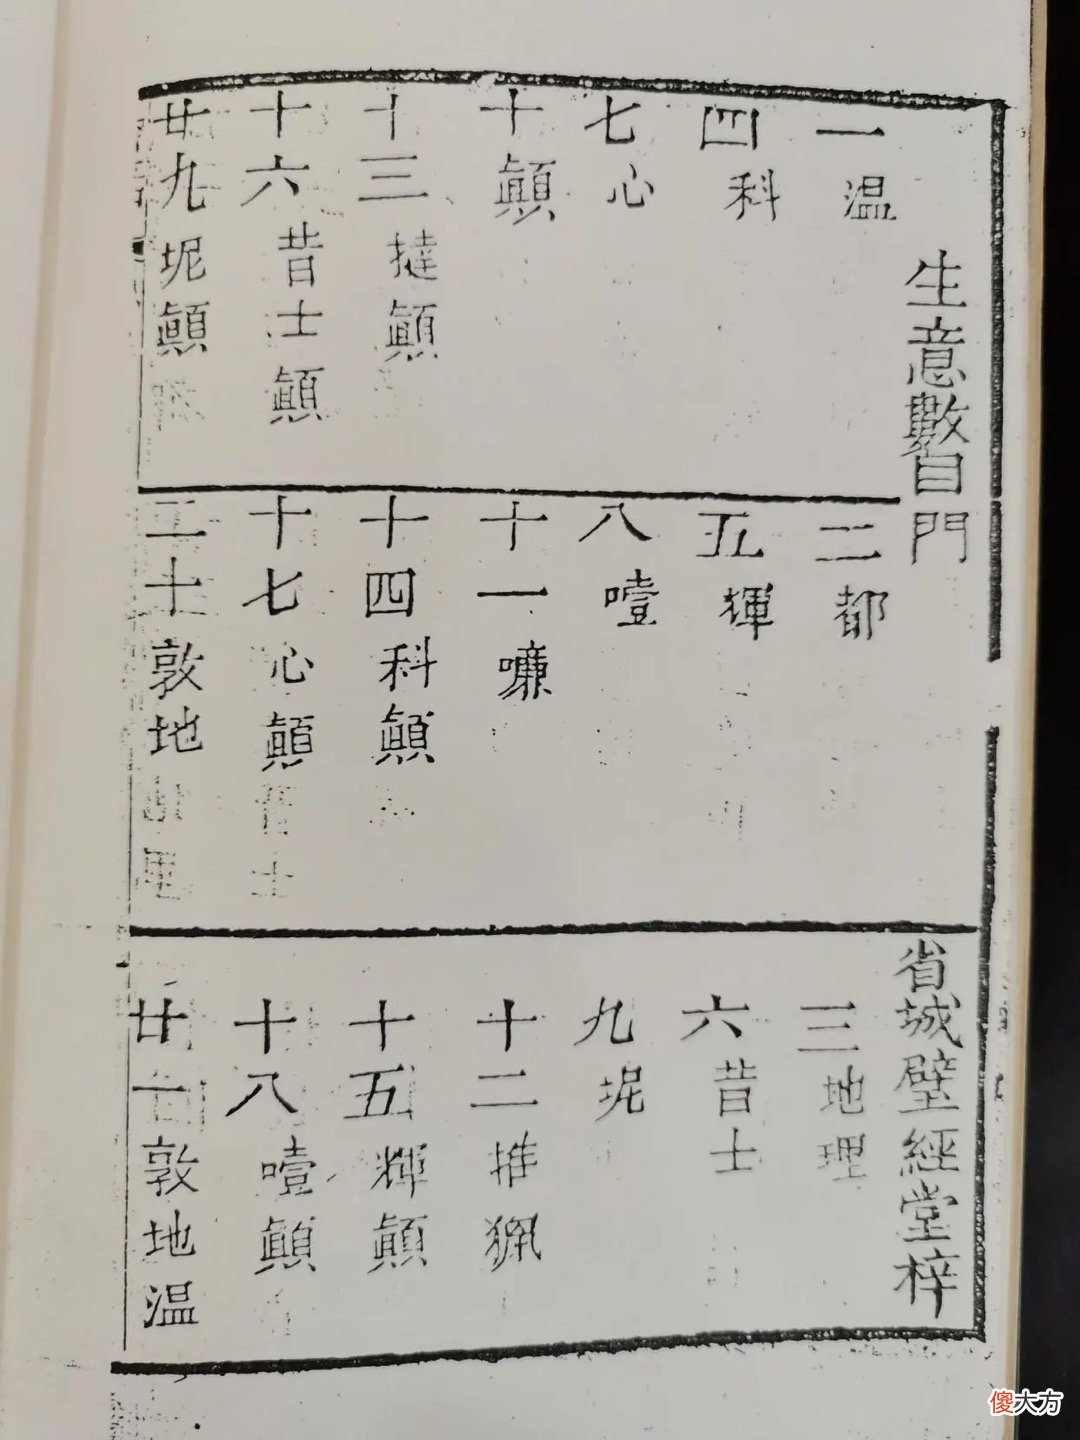 生意數目門
一温
二都
三地理
四科
五揮
六昔士
七心
八噎
九坭
十顛
十一嗛
十二推
十三撻顛
十四科顛
十五輝顛
十六昔士顛
十七心顛
十八噎顛
廿九坭顛
二十敦地
廿一敦地温
省城璧經堂梓
傻大方